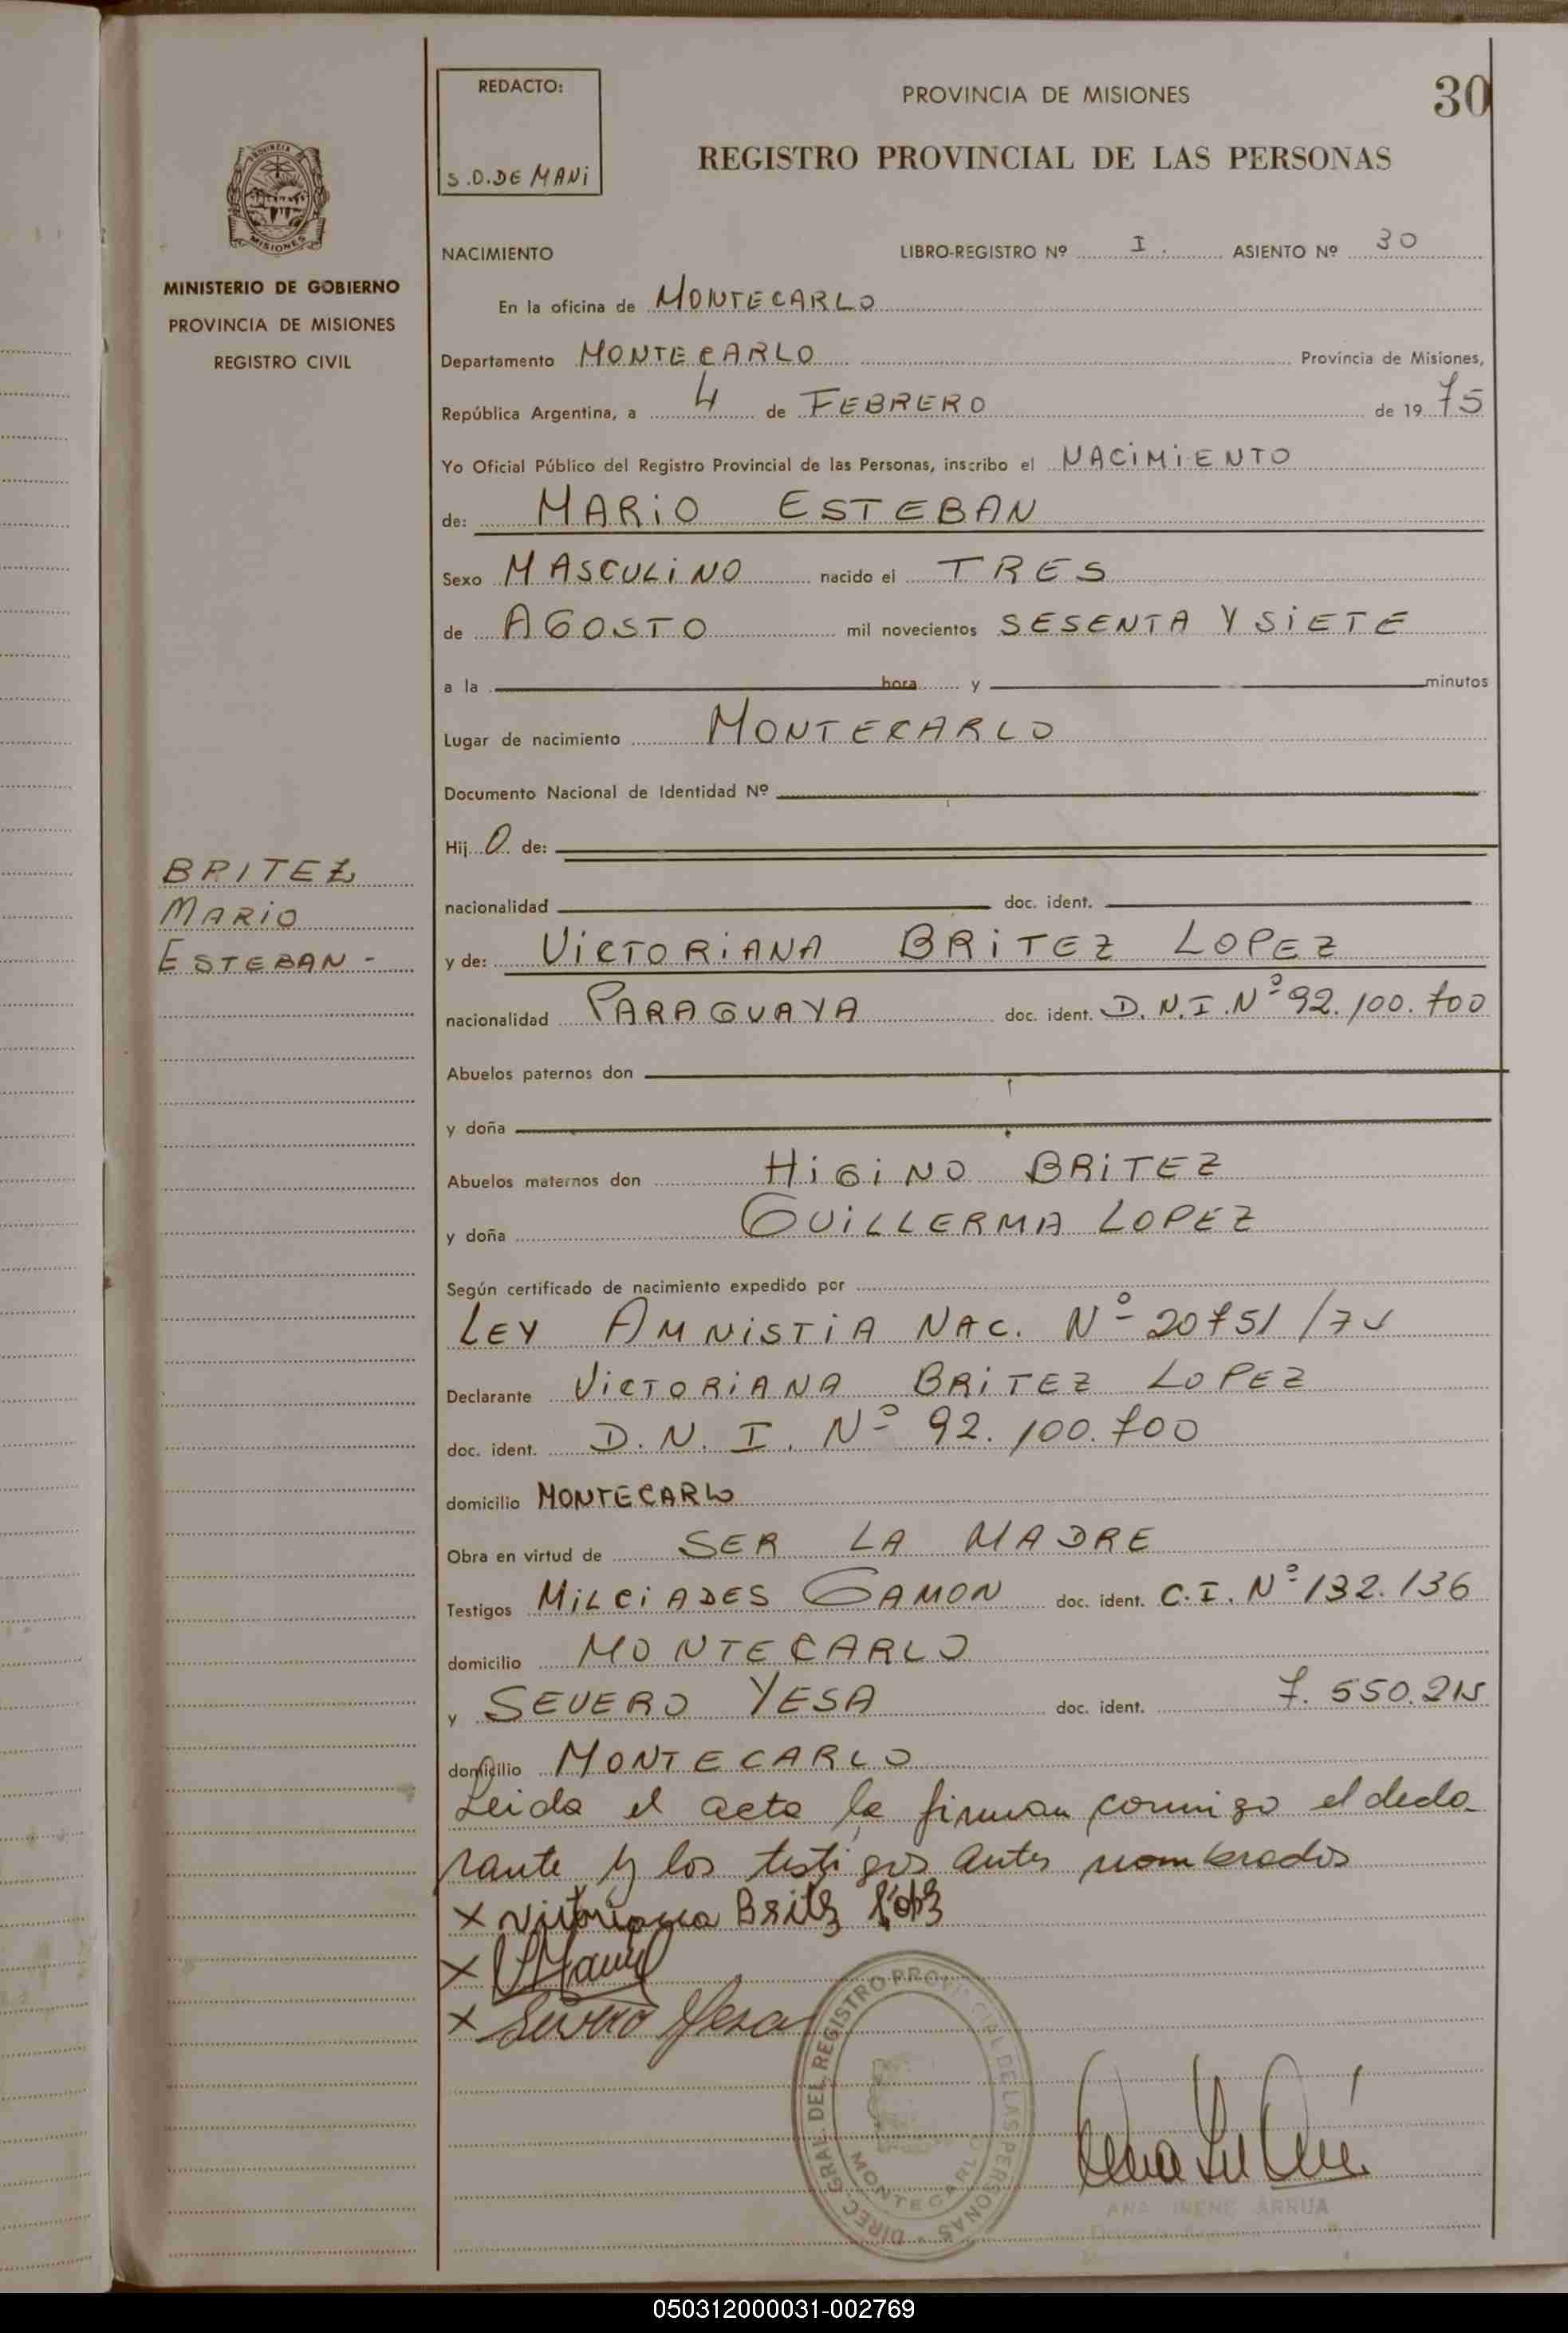 30
REDACTO:
S.O.DE MANi
PROVINCIA DE MISIONES
REGISTRO PROVINCIAL DE LAS PERSONAS
MINISTERIO DE GOBIERNO
PROVINCIA DE MISIONES
REGISTRO CIVIL
NACIMIENTO LIBRO-REGISTRO Nº I. ASIENTO Nº 30
En la oficina de MONTECARLO
Departamento MONTECARLO Provincia de Misiones,
República Argentina, a 4 de FEBRERO de 1975
Yo Oficial Público del Registro Provincial de las Personas, inscribo el NACIMIENTO
de: MARIO ESTEBAN
Sexo MASCULINO nacido el TRES
de AGOSTO mil novecientos SESENTA Y SIETE
a la hora y minutos
Lugar de nacimiento MONTECARLO
Documento Nacional de Identidad Nº
Hij O de:
BRITEZ
MARIO
ESTEBAN -
nacionalidad doc. ident.
y de: VICTORIANA BRITEZ LOPEZ
nacionalidad PARAGUAYA doc. ident. D.N.I.Nº 92.100.700
Abuelos paternos don
y doña
Abuelos maternos don HIGINO BRITEZ
y doña GUILLERMA LOPEZ
Según certificado de nacimiento expedido por
LEY AMNISTIA NAC. Nº 20751/74
Declarante VICTORIANA BRITEZ LOPEZ
doc. ident. D.N.I. Nº 92.100.700
domicilio MONTECARLO
Obra en virtud de SER LA MADRE
Testigos MILCIADES GAMON doc. ident. C.I. Nº 132.136
domicilio MONTECARLO
y SEVERO YESA doc. ident. 7.550.215
domicilio MONTECARLO
Leida el acta la firman conmigo el decla
rante y los testigos antes nombrados
x victoriana Britz Lopz
x
x Severo Yesa
DIREC. GRAL. DEL REGISTRO PROVINCIAL DE LAS PERSONAS
MONTECARLO
ANA IRENE ARRUA
050312000031-002769